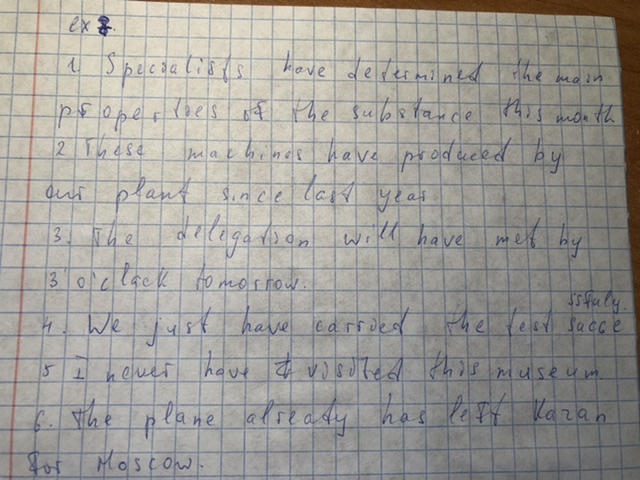 ex 8.
1 Specialists have determined the main
properties of the substance this month
2 These machines have produced by
our plant since last year
3. The delegation will have met by
3 o'clack tomorrow.
ssfuly.
4. We just have carried the test succe
5 I never have visited this museum.
6. The plane already has left Kazan
for Moscow.